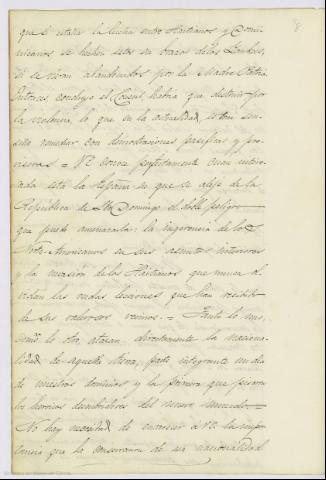 8
que si estalla la lucha entre Haitianos y Domi
nicanos se hechen estos en brazos de los Yankees,
si se viesen abandonados por la Madre Patria
Entonces concluye el Consul habria que destruir por
la violencia, lo que en la actualidad, es tan sen-
cillo remediar con demostraciones pacificas y pre-
visoras = V.E. conoce perfectamente cuan intere-
sada está la España en que se aleje de la
República de Sto. Domingo el doble peligro
que puede amenazarla: la ingerencia de los
Norte-Americanos en sus asuntos interiores
y la invasion de los Haitianos que nunca ol
vidan las rudas lecciones que han recibido
de sus valerosos vecinos. = Tanto lo uno
como lo otro atacan directamente la naciona-
lidad de aquella tierra, parte integrante un dia
de nuestros dominios y la primera que pisaron
los heroicos descubridores del nuevo mundo.
No hay necesidad de encarecer á V.E. la impor
tancia que la conservacion de esa nacionalidad